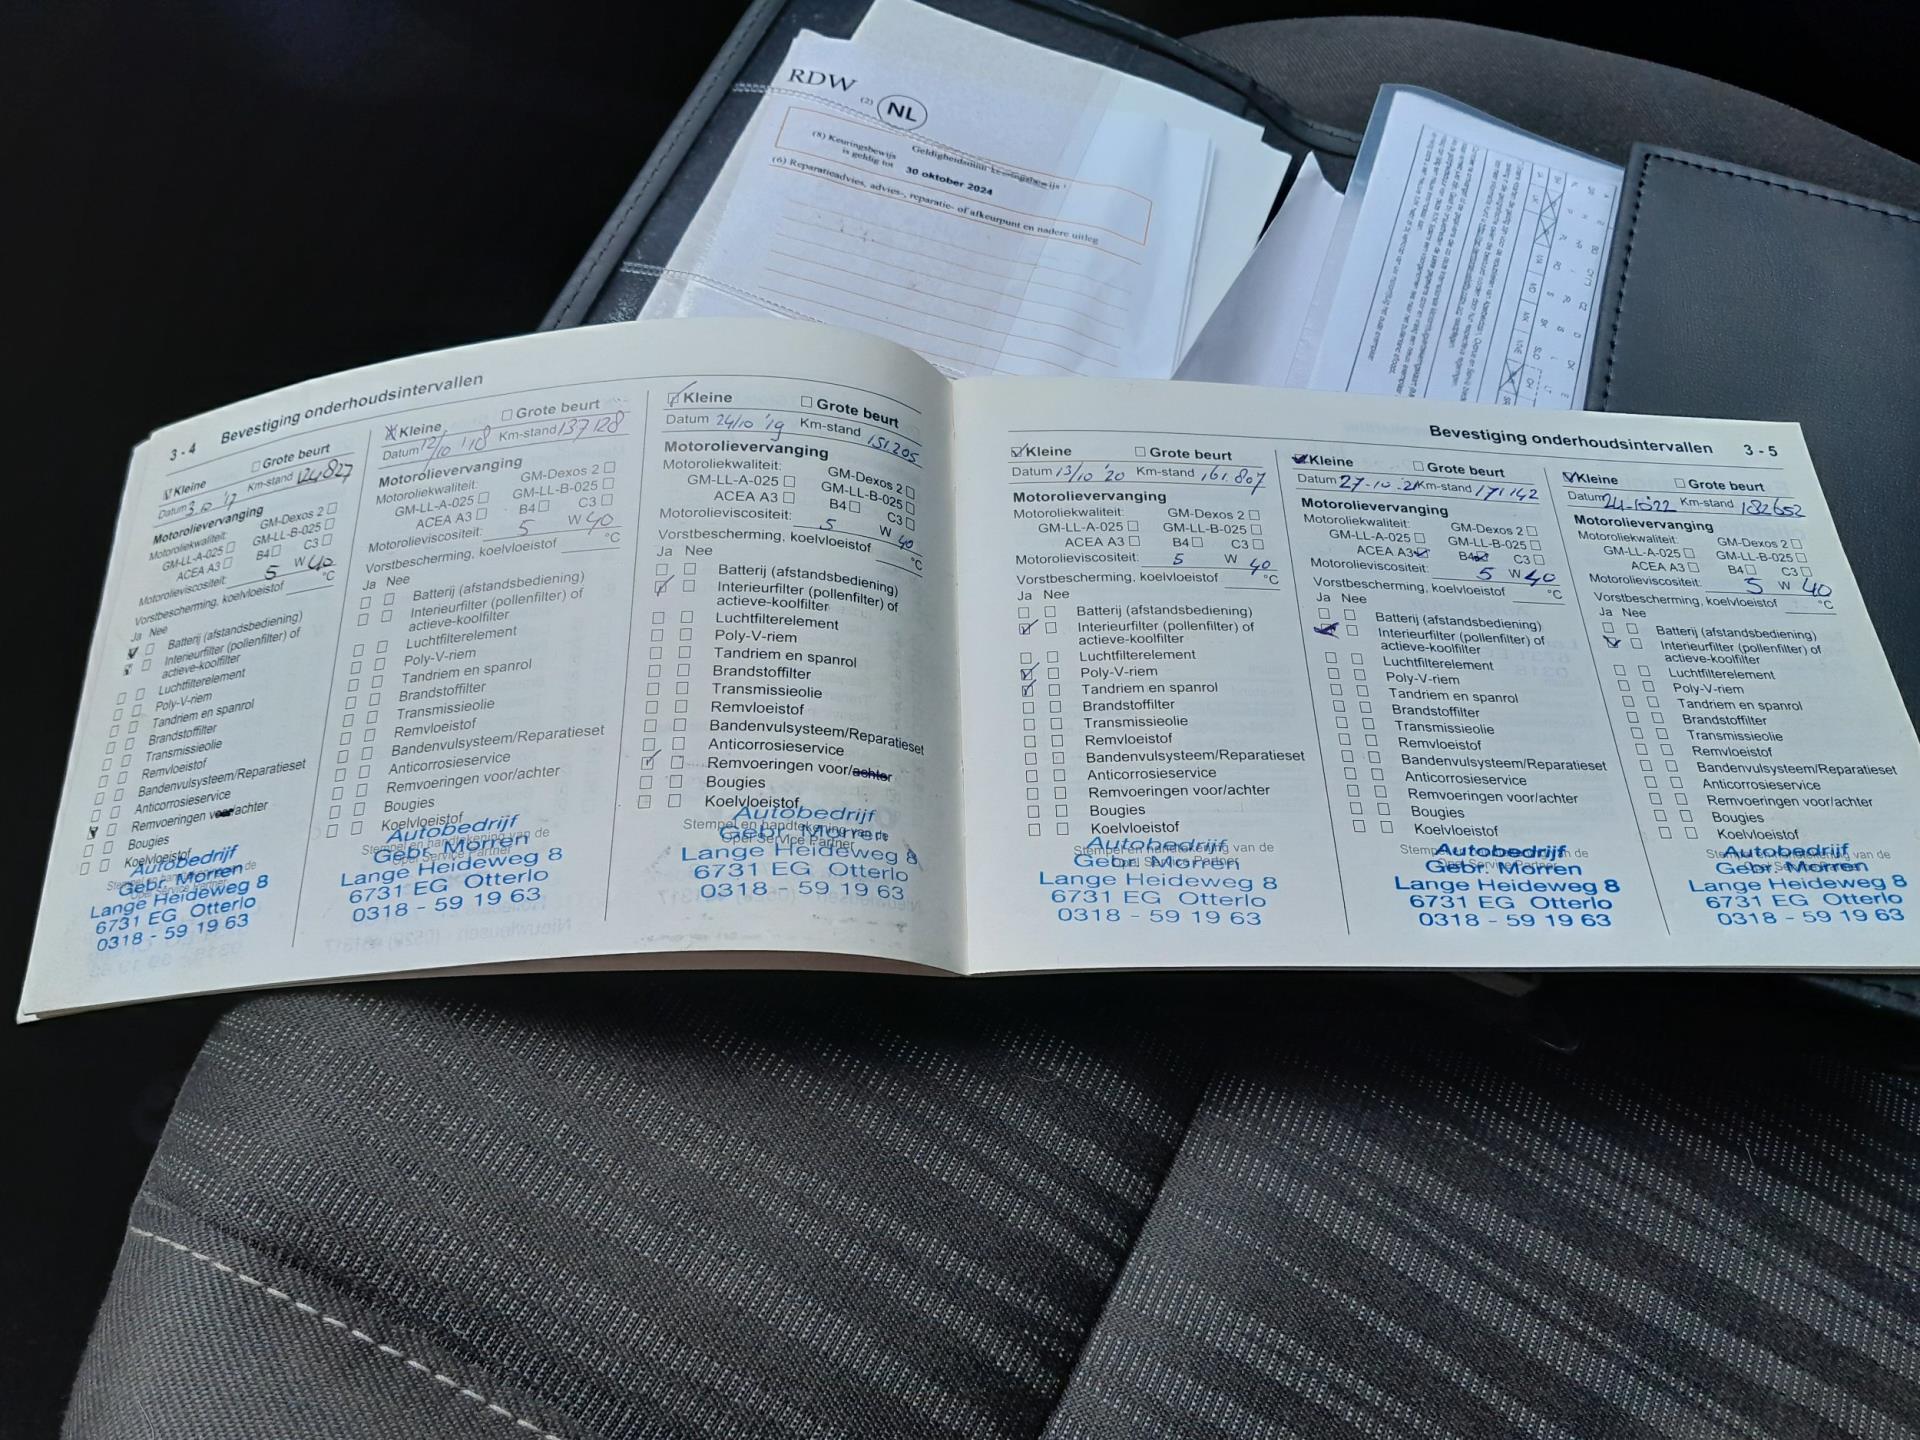 RDW (2) NL
(8) Keuringsbewijs
is geldig tot
Geldigheidsduur keuringsbewijs
30 oktober 2024
(6) Reparatieadvies, advies-, reparatie- of afkeurpunt en nadere uitleg
3 - 4 Bevestiging onderhoudsintervallen
Kleine Grote beurt
Datum 3.10 '17 Km-stand 124.827
Motorolievervanging
Motoroliekwaliteit: GM-Dexos 2
GM-LL-A-025 GM-LL-B-025
ACEA A3 B4 C3
Motorolieviscositeit: 5 W 40
Vorstbescherming, koelvloeistof °C
Ja Nee
Batterij (afstandsbediening)
Interieurfilter (pollenfilter) of
actieve-koolfilter
Luchtfilterelement
Poly-V-riem
Tandriem en spanrol
Brandstoffilter
Transmissieolie
Remvloeistof
Bandenvulsysteem/Reparatieset
Anticorrosieservice
Remvoeringen voor/achter
Bougies
Koelvloeistof
Autobedrijf
Gebr. Morren
Lange Heideweg 8
6731 EG Otterlo
0318 - 59 19 63
Kleine Grote beurt
Datum 12/10 '18 Km-stand 137128
Motorolievervanging
Motoroliekwaliteit: GM-Dexos 2
GM-LL-A-025 GM-LL-B-025
ACEA A3 B4 C3
Motorolieviscositeit: 5 W 40
Vorstbescherming, koelvloeistof °C
Ja Nee
Batterij (afstandsbediening)
Interieurfilter (pollenfilter) of
actieve-koolfilter
Luchtfilterelement
Poly-V-riem
Tandriem en spanrol
Brandstoffilter
Transmissieolie
Remvloeistof
Bandenvulsysteem/Reparatieset
Anticorrosieservice
Remvoeringen voor/achter
Bougies
Koelvloeistof
Stempel en handtekening van de
Opel Service Partner
Autobedrijf
Gebr. Morren
Lange Heideweg 8
6731 EG Otterlo
0318 - 59 19 63
Kleine Grote beurt
Datum 24/10 '19 Km-stand 151.205
Motorolievervanging
Motoroliekwaliteit: GM-Dexos 2
GM-LL-A-025 GM-LL-B-025
ACEA A3 B4 C3
Motorolieviscositeit: 5 W 40
Vorstbescherming, koelvloeistof °C
Ja Nee
Batterij (afstandsbediening)
Interieurfilter (pollenfilter) of
actieve-koolfilter
Luchtfilterelement
Poly-V-riem
Tandriem en spanrol
Brandstoffilter
Transmissieolie
Remvloeistof
Bandenvulsysteem/Reparatieset
Anticorrosieservice
Remvoeringen voor/achter
Bougies
Koelvloeistof
Stempel en handtekening van de
Opel Service Partner
Autobedrijf
Gebr. Morren
Lange Heideweg 8
6731 EG Otterlo
0318 - 59 19 63
Bevestiging onderhoudsintervallen 3 - 5
Kleine Grote beurt
Datum 13/10 '20 Km-stand 161.807
Motorolievervanging
Motoroliekwaliteit: GM-Dexos 2
GM-LL-A-025 GM-LL-B-025
ACEA A3 B4 C3
Motorolieviscositeit: 5 W 40
Vorstbescherming, koelvloeistof °C
Ja Nee
Batterij (afstandsbediening)
Interieurfilter (pollenfilter) of
actieve-koolfilter
Luchtfilterelement
Poly-V-riem
Tandriem en spanrol
Brandstoffilter
Transmissieolie
Remvloeistof
Bandenvulsysteem/Reparatieset
Anticorrosieservice
Remvoeringen voor/achter
Bougies
Koelvloeistof
Stempel en handtekening van de
Opel Service Partner
Autobedrijf
Gebr. Morren
Lange Heideweg 8
6731 EG Otterlo
0318 - 59 19 63
Kleine Grote beurt
Datum 27-10-21 Km-stand 171142
Motorolievervanging
Motoroliekwaliteit: GM-Dexos 2
GM-LL-A-025 GM-LL-B-025
ACEA A3 B4 C3
Motorolieviscositeit: 5 W 40
Vorstbescherming, koelvloeistof °C
Ja Nee
Batterij (afstandsbediening)
Interieurfilter (pollenfilter) of
actieve-koolfilter
Luchtfilterelement
Poly-V-riem
Tandriem en spanrol
Brandstoffilter
Transmissieolie
Remvloeistof
Bandenvulsysteem/Reparatieset
Anticorrosieservice
Remvoeringen voor/achter
Bougies
Koelvloeistof
Stempel en handtekening van de
Opel Service Partner
Autobedrijf
Gebr. Morren
Lange Heideweg 8
6731 EG Otterlo
0318 - 59 19 63
Kleine Grote beurt
Datum 24-10 22 Km-stand 182652
Motorolievervanging
Motoroliekwaliteit: GM-Dexos 2
GM-LL-A-025 GM-LL-B-025
ACEA A3 B4 C3
Motorolieviscositeit: 5 W 40
Vorstbescherming, koelvloeistof °C
Ja Nee
Batterij (afstandsbediening)
Interieurfilter (pollenfilter) of
actieve-koolfilter
Luchtfilterelement
Poly-V-riem
Tandriem en spanrol
Brandstoffilter
Transmissieolie
Remvloeistof
Bandenvulsysteem/Reparatieset
Anticorrosieservice
Remvoeringen voor/achter
Bougies
Koelvloeistof
Stempel en handtekening van de
Opel Service Partner
Autobedrijf
Gebr. Morren
Lange Heideweg 8
6731 EG Otterlo
0318 - 59 19 63